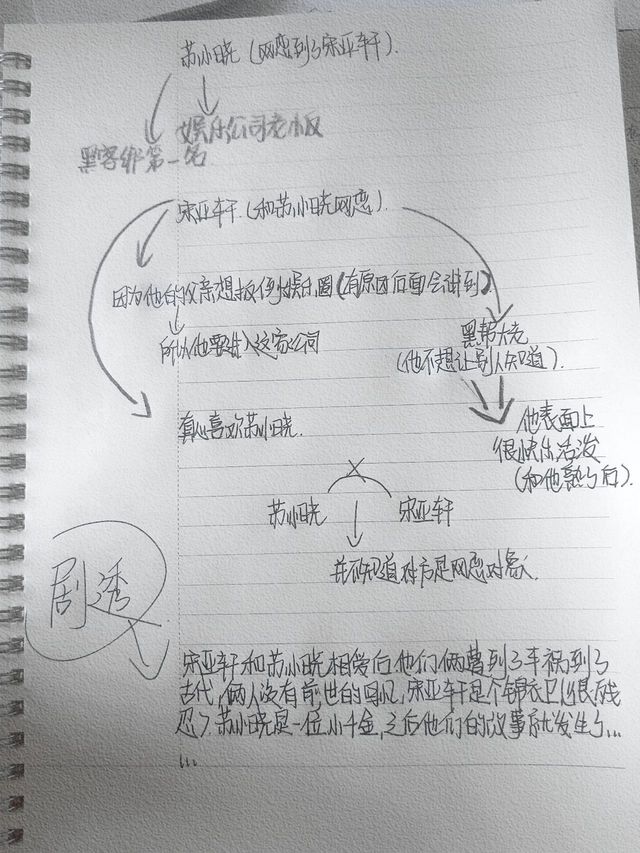 苏小晓（网恋到了宋亚轩）.
娱乐公司老板
黑客绑第一名
宋亚轩（和苏小晓网恋）.
因为他的父亲想扳倒娱乐圈（有原因后面会讲到）
所以他要进入这家公司
黑帮大老
（他不想让别人知道）.
真心喜欢苏小晓.
他表面上
很快乐活泼
（和他熟了后）.
苏小晓 宋亚轩
并不知道对方是网恋对象.
剧透
宋亚轩和苏小晓相爱后他们俩遭到了车祸到了
古代,俩人没有前世的回忆,宋亚轩是个锦衣卫（很残
忍）.苏小晓是一位小千金,之后他们的故事就发生了...
...